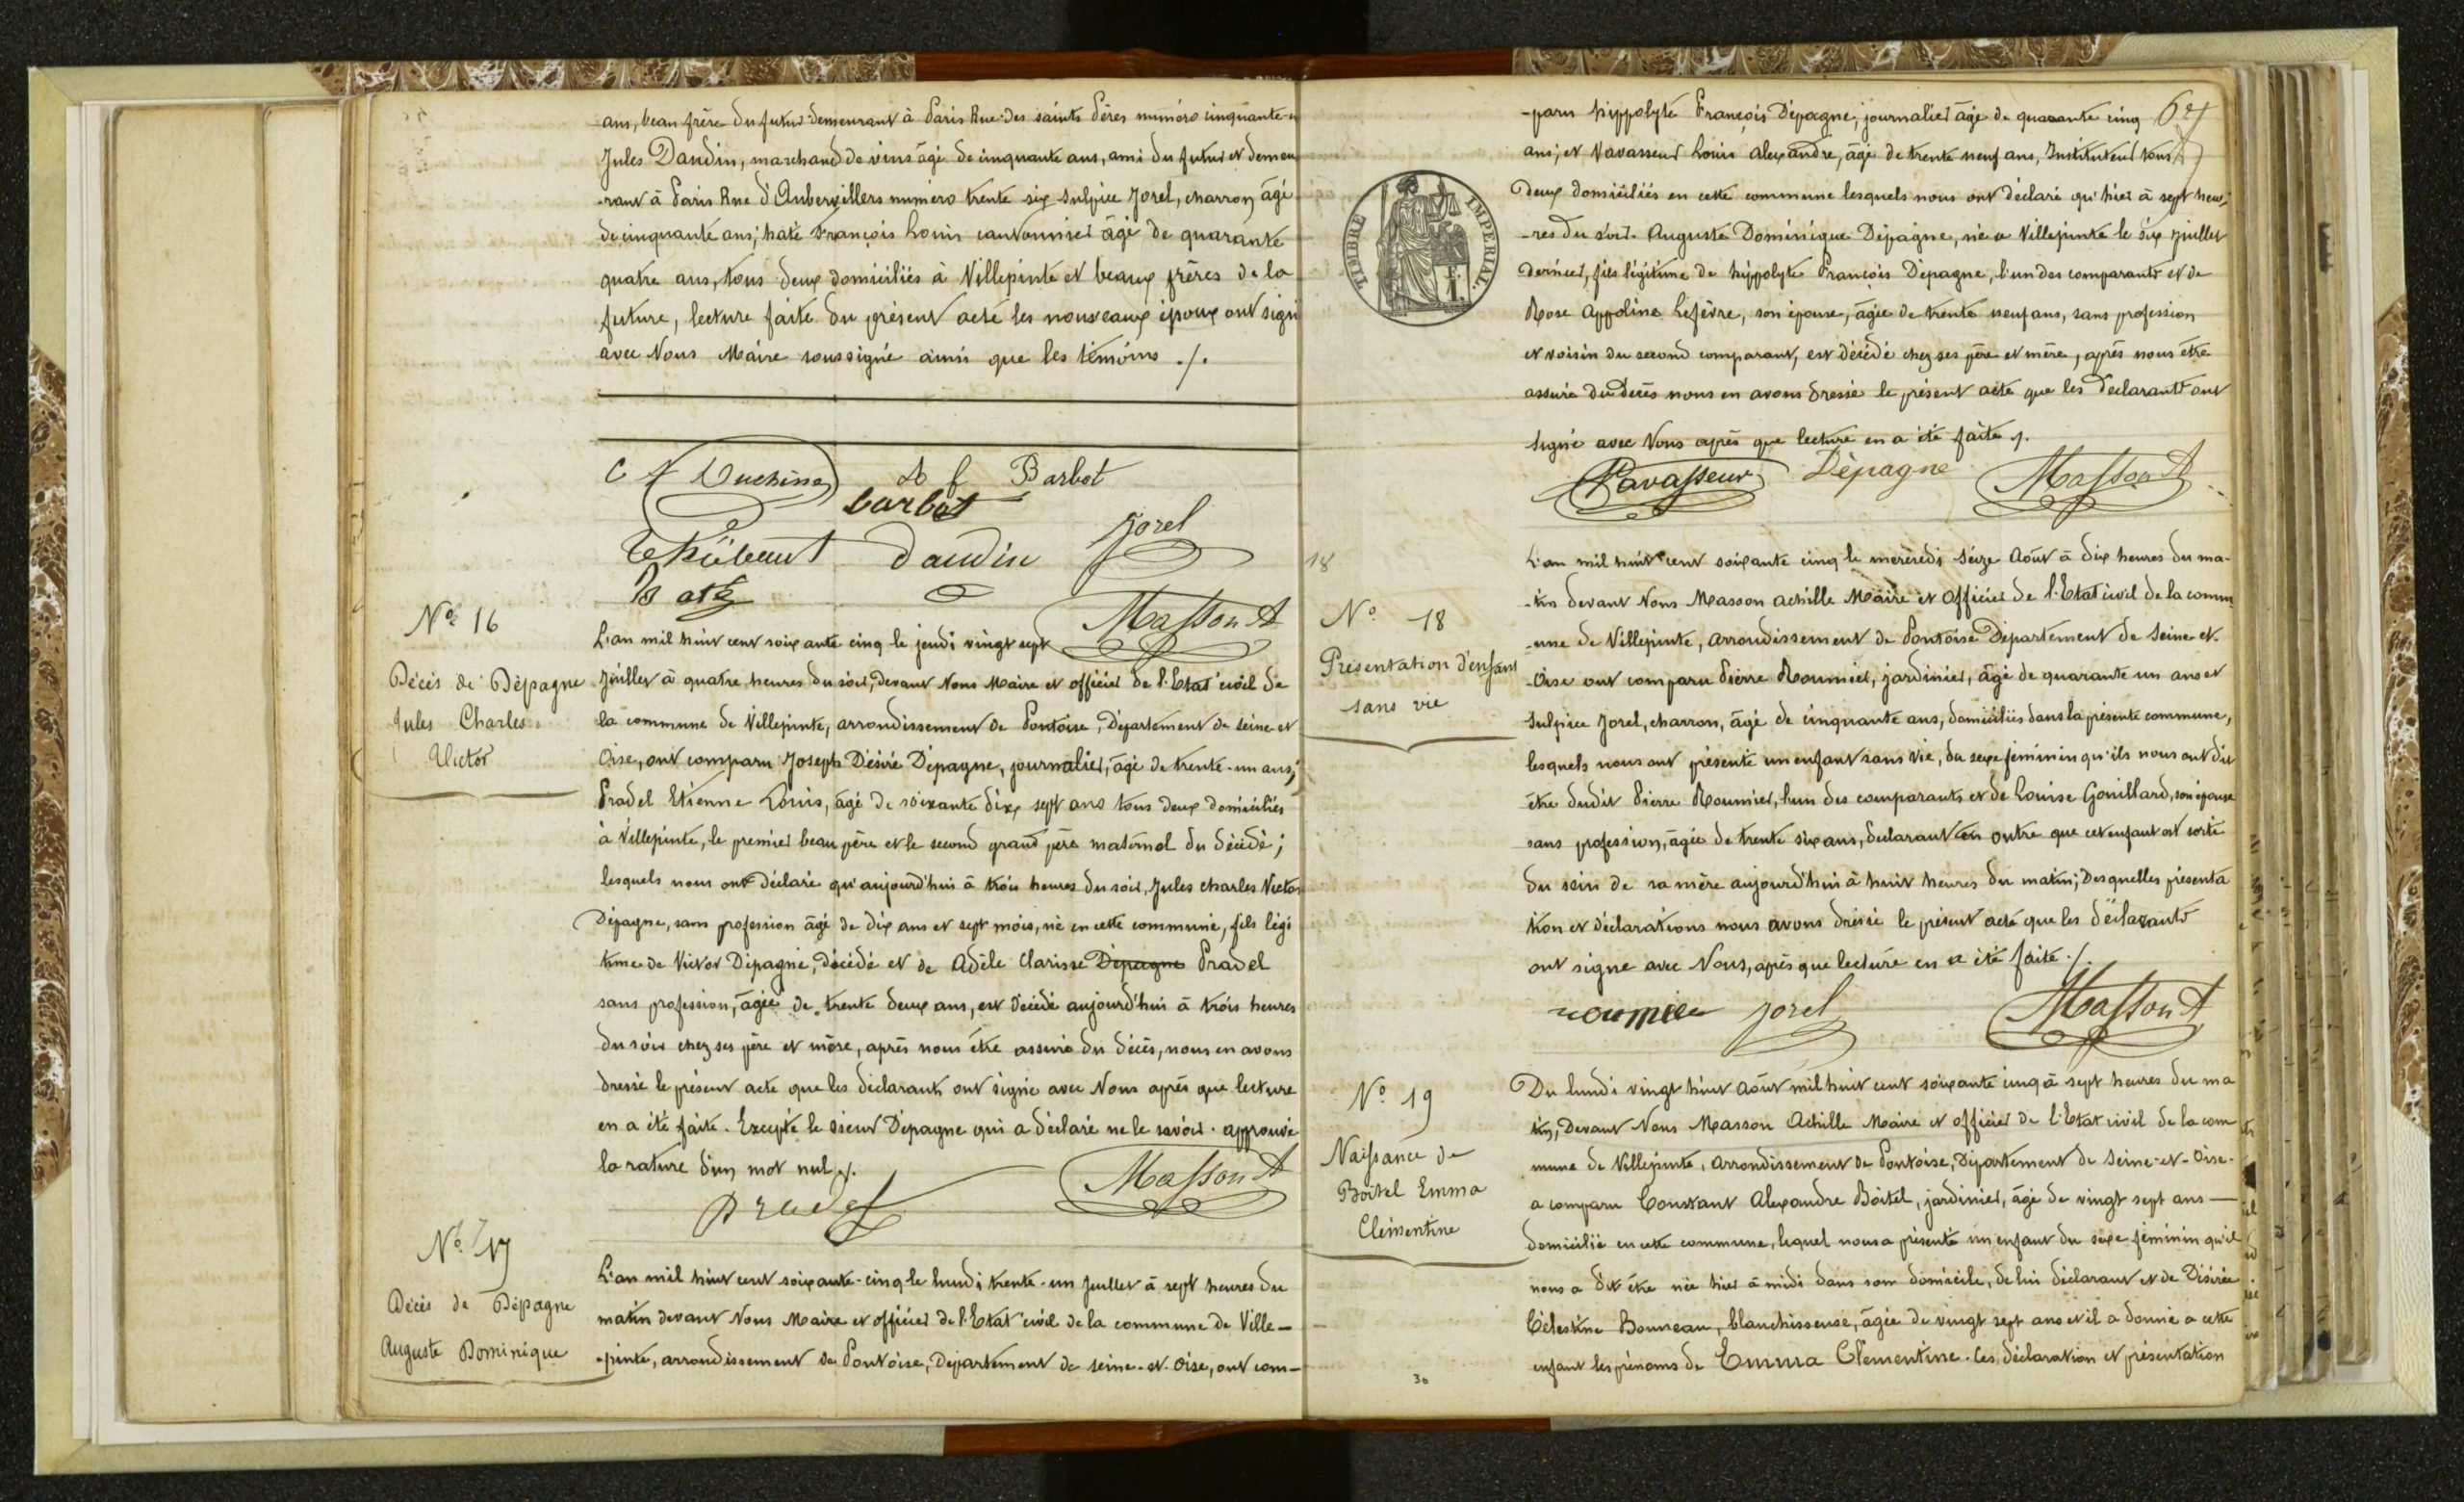 ans, beau frère du futur demeurant à Paris Rue des saints Pères numéro cinquante
Jules Daudin, marchand de vins âgé de cinquante ans, ami du futur et demeu
-rant à Paris Rue d'Aubervillers numéro trente six Sulpice Jorel, charron âgé
de cinquante ans; hate François Louis cantonnier âgé de quarante
quatre ans, tous deux domiciliés à Villepinte et beaux frères de la
future, lecture faite du présent acte les nouveaux époux ont signé
avec Nous Maire soussigné ainsi que les témoins ./.
Duchène Barbot
barbot
Thiébaut Daudin Jorel
Masson A
No 16
Décès de Dépagne
Jules Charles
Victor
L'an mil huit cent soixante cinq le jeudi vingt sept
Juillet à quatre heures du soir, devant Nous Maire et officier de l'Etat civil de
la commune de Villepinte, arrondissement de Pontoise, Département de Seine et
Oise, ont comparu Joseph Désiré Dépagne, journalier, âgé de trente-un ans;
Pradel Etienne Louis, âgé de soixante dix sept ans tous deux domiciliés
à Villepinte, le premier beau père et le second grand père maternel du décédé;
lesquels nous ont déclaré qu'aujourd'hui à trois heures du soir, Jules Charles Victor
Dépagne, sans profession âgé de dix ans et sept mois, né en cette commune, fils légi
time de Victor Dépagne, décédé et de Adèle Clarisse Dépagne Pradel
sans profession, âgée de trente deux ans, est décédé aujourd'hui à trois heures
du soir chez ses père et mère, après nous être assuré du décès, nous en avons
dressé le présent acte que les déclarants ont signé avec Nous après que lecture
en a été faite. Excepté le sieur Dépagne qui a déclaré ne le savoir. approuvé
la rature d'un mot nul ./.
Pradel Masson A
No 17
Décès de Dépagne
Auguste Dominique
L'an mil huit cent soixante-cinq le lundi trente-un Juillet à sept heures du
matin devant Nous Maire et officier de l'Etat civil de la commune de Ville-
-pinte, arrondissement de Pontoise, Département de Seine-et-Oise, ont com-
-paru hippolyte François Dépagne, journalier âgé de quarante cinq
ans; et Vavasseur Louis alexandre, âgé de trente neuf ans, Instituteur tous
deux domiciliés en cette commune lesquels nous ont déclaré qu'hier à sept heu-
-res du soir Auguste Dominique Dépagne, né a Villepinte le six juillet
dernier, fils légitime de hippolyte François Dépagne, l'un des comparants et de
Rose Appoline Lefèvre, son épouse, âgée de trente neuf ans, sans profession
et voisin du second comparant, est décédé chez ses père et mère, après nous être
assuré du Décès nous en avons dressé le présent acte que les Déclarants ont
signé avec Nous après que lecture en a été faite ./.
TIMBRE IMPERIAL.
Vavasseur Dépagne Masson A
18
No 18
Présentation d'enfant
sans vie
L'an mil huit cent soixante cinq le mercredi seize Août à dix heures du ma-
-tin devant Nous Masson Achille Maire et Officier de l'Etat civil de la comm
-une de Villepinte, arrondissement de Pontoise Département de Seine-et-
-Oise ont comparu Pierre Roumier, jardinier, âgé de quarante un ans et
Sulpice Jorel, charron, âgé de cinquante ans, domiciliés dans la présente commune,
lesquels nous ont présenté un enfant sans vie, du sexe féminin qu'ils nous ont dit
être dudit Pierre Roumier, l'un des comparants et de Louise Gouillard, son épouse
sans profession, âgée de trente six ans, déclarant en outre que cet enfant est sorti
du sein de sa mère aujourd'hui à huit heures du matin; Desquelles présenta
tion et déclarations nous avons dressé le présent acte que les déclarants
ont signé avec Nous, après que lecture en a été faite ./.
roumier Jorel Masson A
No 19
Naissance de
Boitel Emma
Clémentine
Du lundi vingt huit Août mil huit cent soixante cinq à sept heures du ma
tin, Devant Nous Masson Achille Maire et officier de l'Etat civil de la com
mune de Villepinte, arrondissement de Pontoise, Département de Seine-et-Oise-
a comparu Constant Alexandre Boitel, jardinier, âgé de vingt sept ans —
domicilié en cette commune, lequel nous a présenté un enfant du sexe féminin qu'il
nous a dit être née hier à midi dans son domicile, de lui déclarant et de Désirée
Célestine Bonneau, blanchisseuse, âgée de vingt sept ans et il a donné a cette
enfant les prénoms de Emma Clementine. Ces déclaration et présentation
30